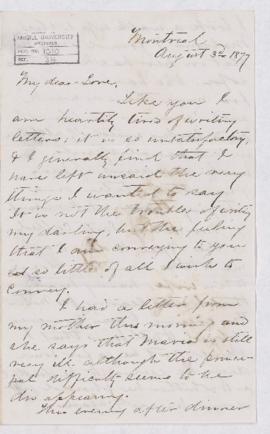 McGILL UNIVERSITY
ARCHIVES
ACC. NO. 1010
REF. 34
Montreal
August 3rd 1877
My dear Love,
Like you I
am heartily tired of writing
letters; it is so unsatisfactory,
& I generally find that I
have left unsaid the very
things I wanted to say
It is not the trouble of writing
my darling, but the feeling
that I am conveying to you
so little of all I wish to
convey.
I had a letter from
my mother this morning and
she says that Maria is still
very ill although the princi-
pal difficulty seems to be
dis appearing.
This evening after dinner